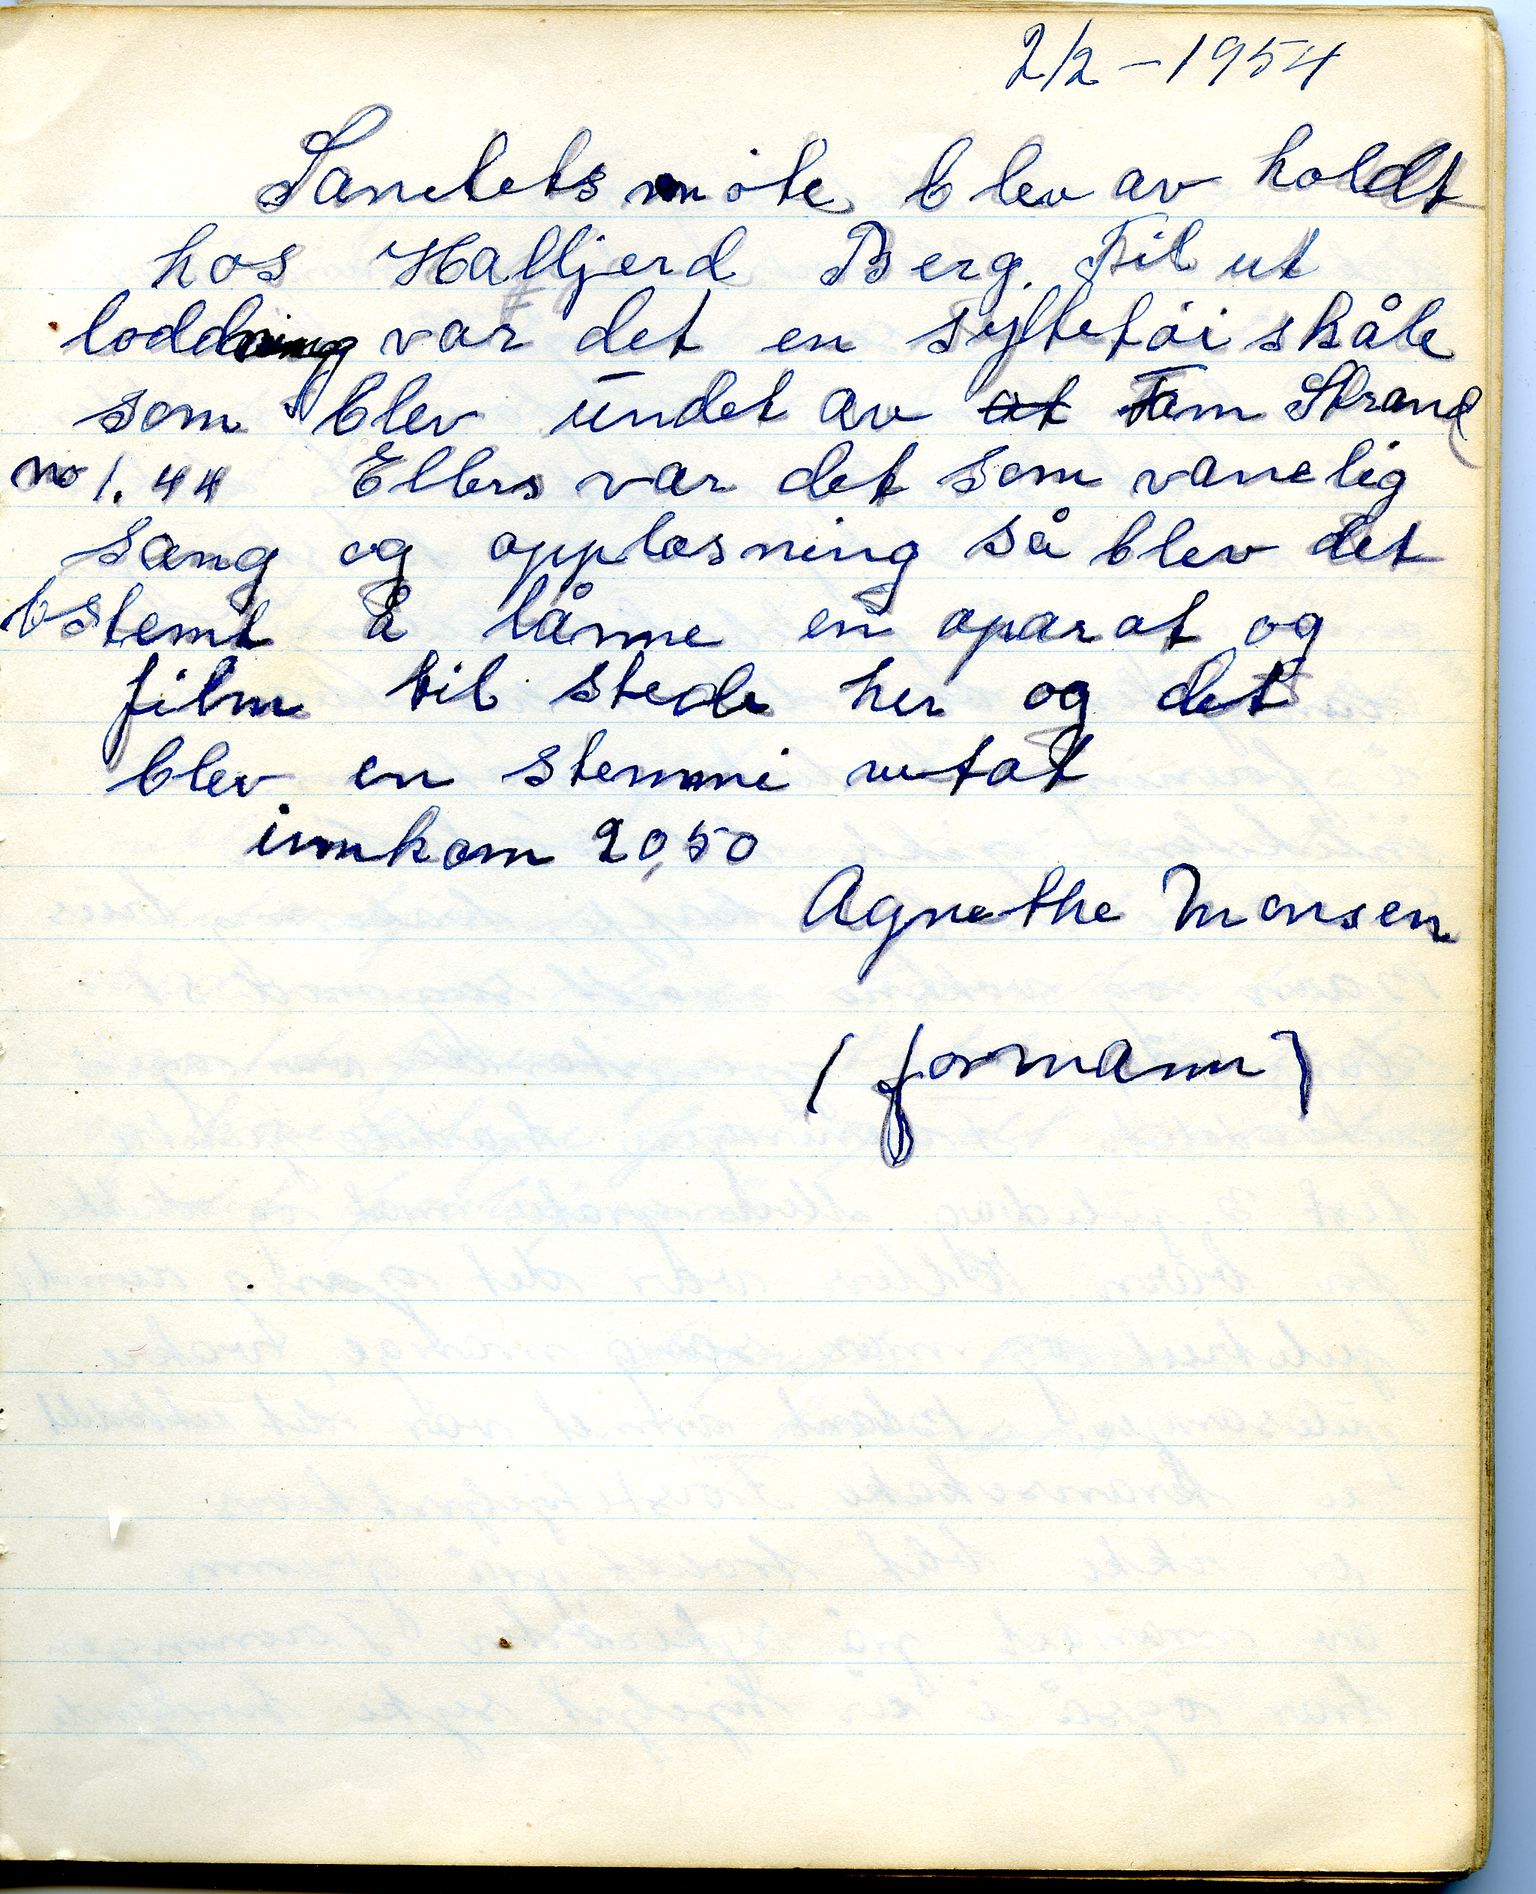 2/2 - 1954
Sanitets möte blev av holdt
hos Halfjerd Berg. Til ut
loddning var det en syltetöi skåle
som blev vundet av at Tom Strand
no 1.44 Ellers var det som vanelig
sang og opplesning så blev det
bstemt å lånne en aparat og
film til stede her og det
blev en stemmi vetat
innkom 20,50
Agnethe Monsen
(formann)